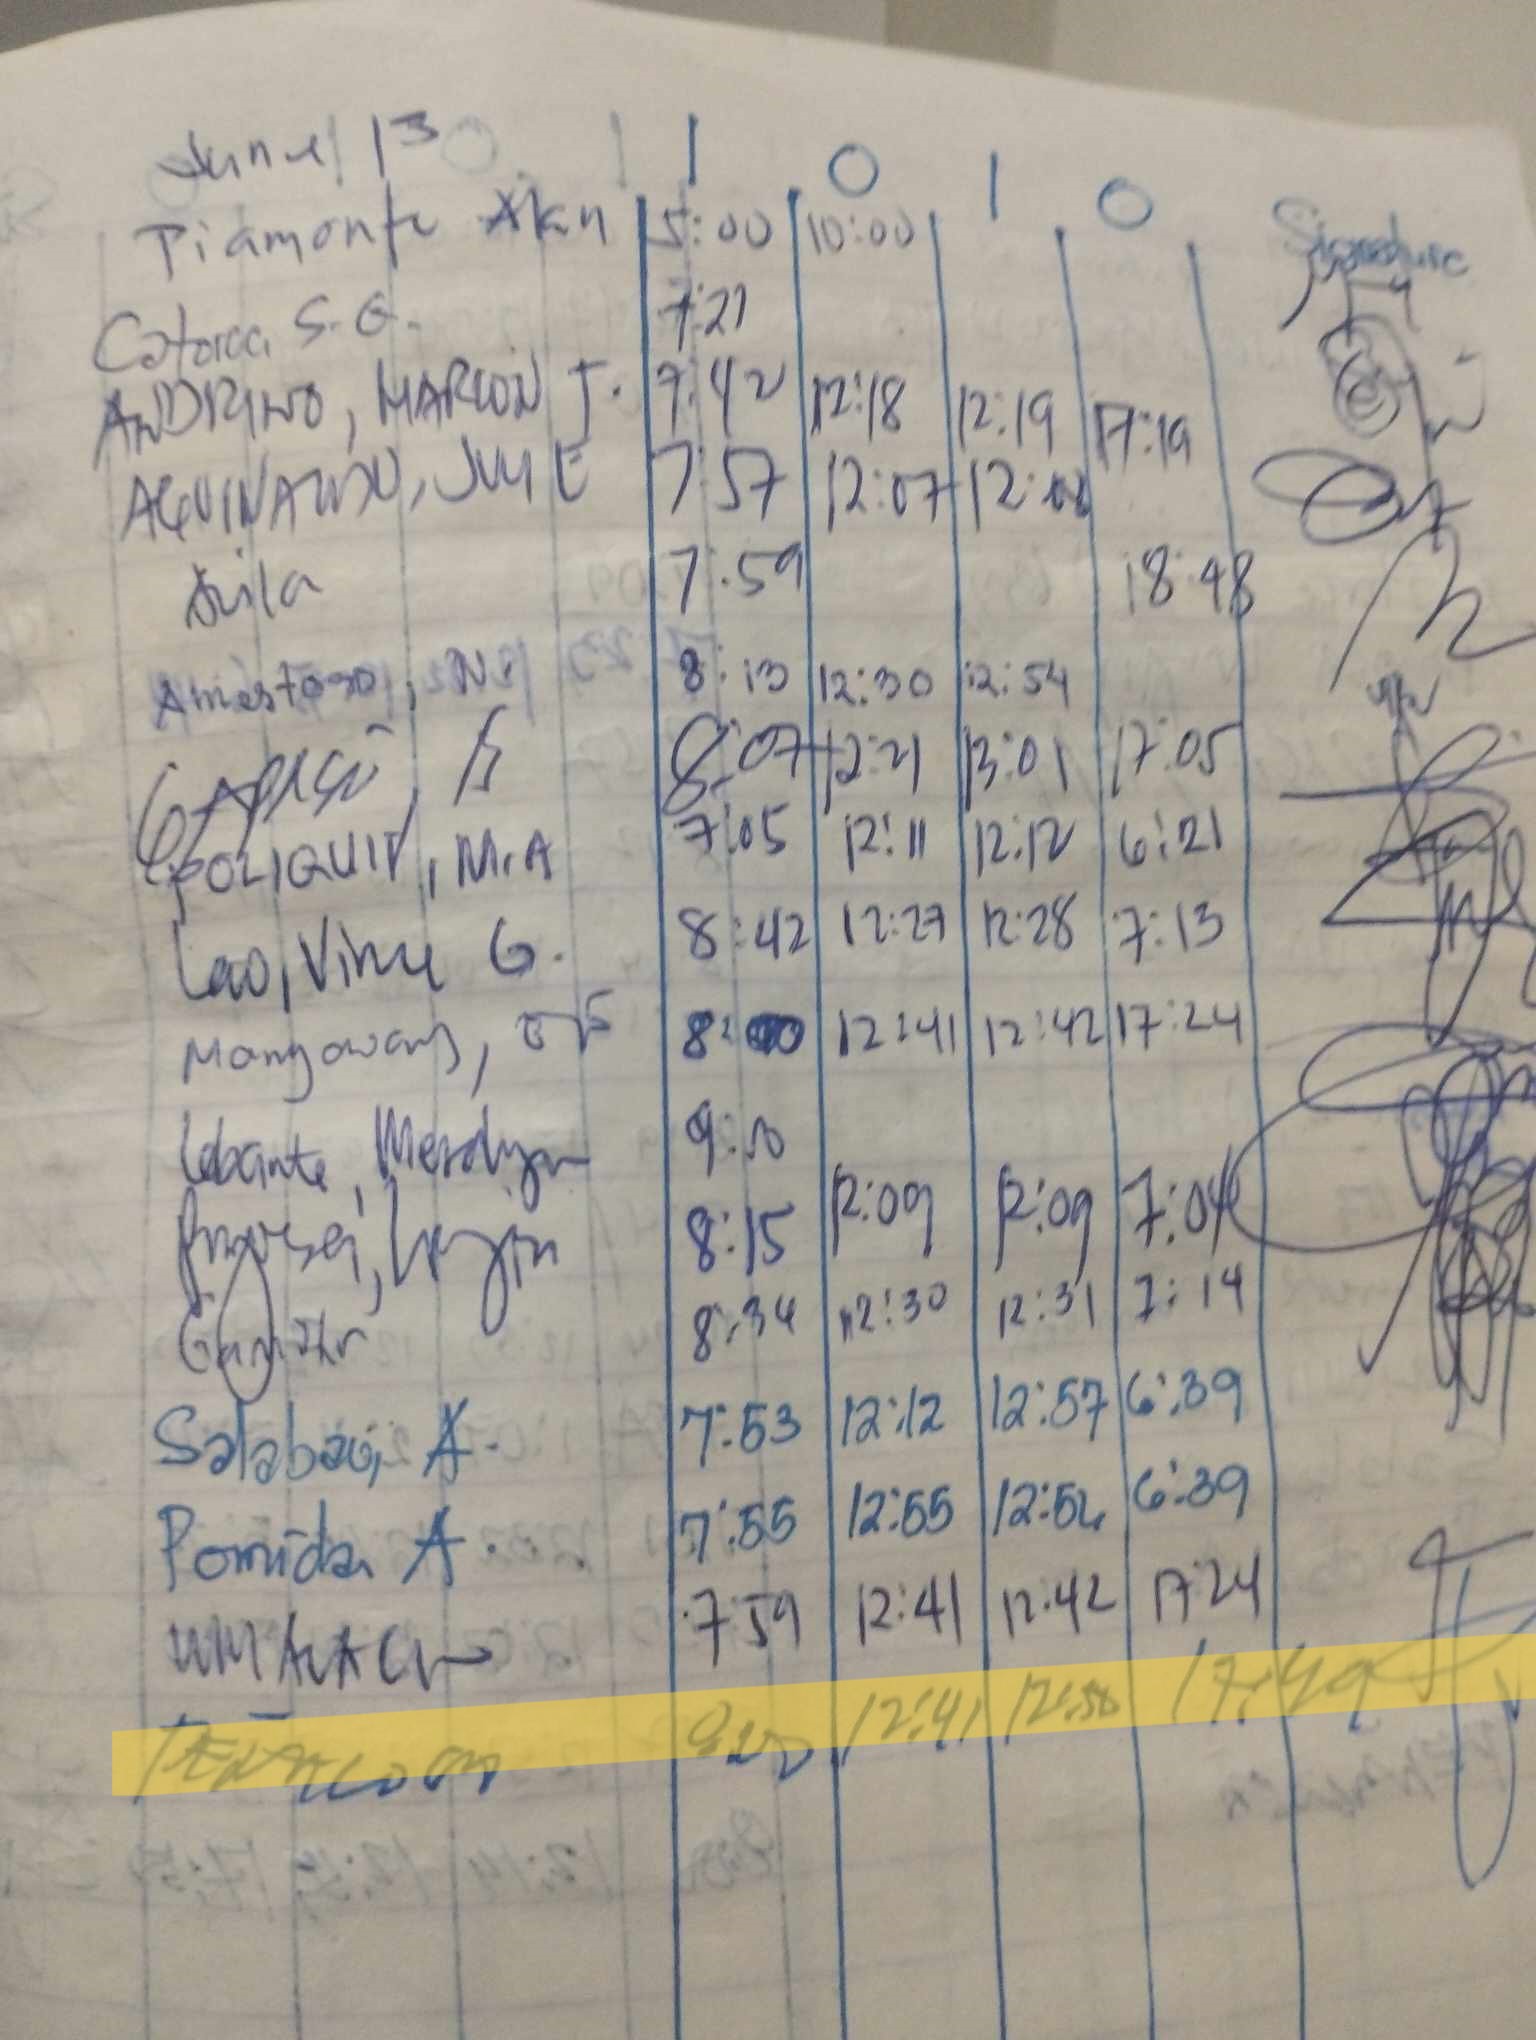 June 13 I O I O Signature
Piamonte Alan 5:00 10:00
Catorce, S. G. 7:21
ANDRINO, MARLON J. 7:42 12:18 12:19 17:19
AGUINALDO, JULY E 7:57 12:07 12:08
Avila 7:59 18:48
Amestoso, N. 8:13 12:30 12:54
8:07 12:21 13:01 17:05
POLIQUIT, M.A 7:05 12:11 12:12 6:21
Lao, Vince G. 8:42 12:27 12:28 7:13
Mangawang, 8: 12:41 12:42 17:24
Lebante, Merolyn
8:15 12:09 12:09 7:04
8:34 12:30 12:31 7:14
Salabao, A. 7:53 12:12 12:57 6:39
Pomida A. 7:55 12:55 12:56 6:39
7:59 12:41 12:42 17:24
12:41 12:58 17:49